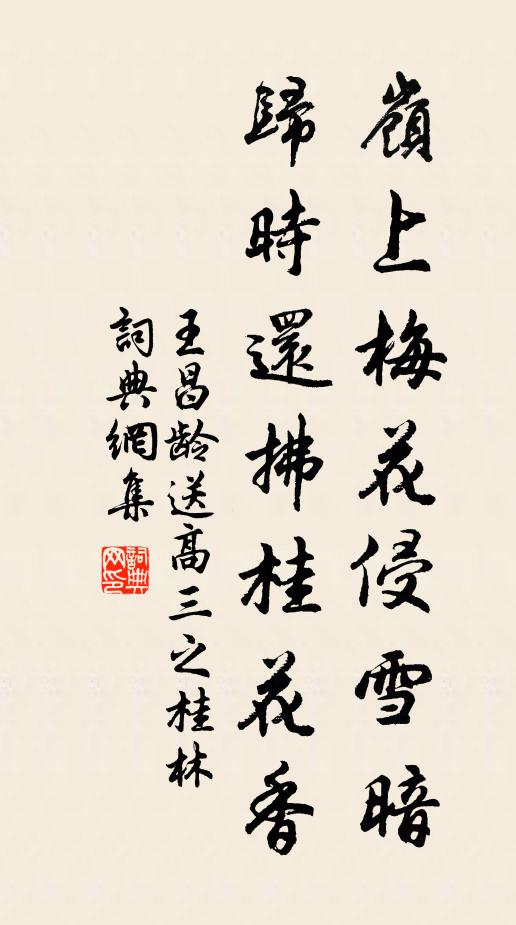 嶺上梅花侵雪暗
歸時還拂桂花香
王昌龄送高三之桂林
詞典網集
詞典
网印